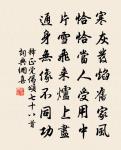 寒灰發焰舊家風
恰恰當人受用中
片雪飛來爐上盡
通身無像不同功
釋正覺偈頌七十八首
詞典網春